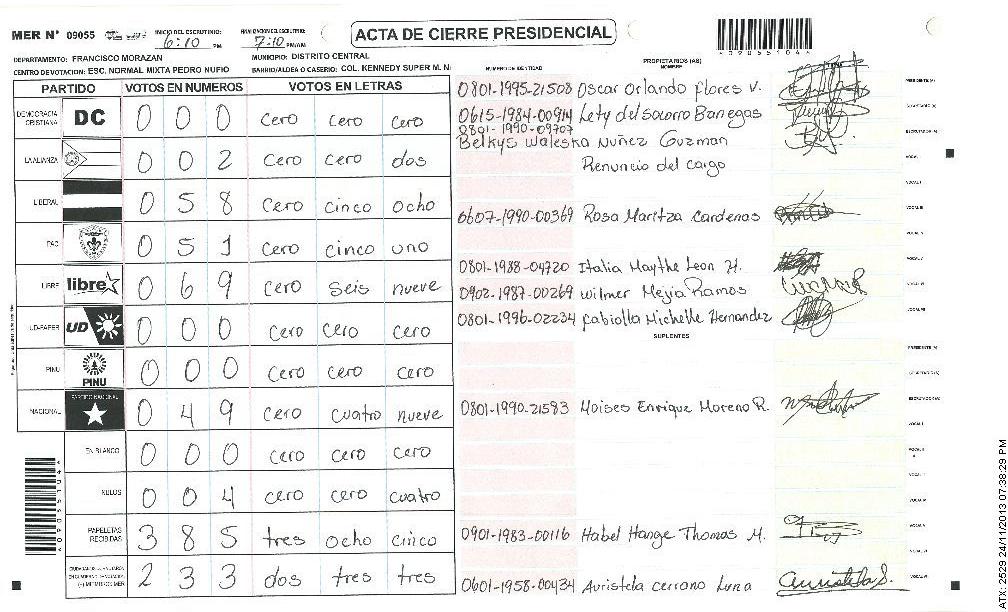 MER Nº 09055
INICIO DEL ESCRUTINIO: 6:10 PM
FINALIZACION DEL ESCRUTINIO: 7:10 PM/AM
ACTA DE CIERRE PRESIDENCIAL
DEPARTAMENTO: FRANCISCO MORAZAN
MUNICIPIO: DISTRITO CENTRAL
CENTRO DE VOTACION: ESC. NORMAL MIXTA PEDRO NUFIO
BARRIO/ALDEA O CASERIO: COL. KENNEDY SUPER M. N:
PARTIDO VOTOS EN NUMEROS VOTOS EN LETRAS
DEMOCRACIA CRISTIANA DC 0 0 0 cero cero cero
LA ALIANZA 0 0 2 cero cero dos
LIBERAL 0 5 8 cero cinco ocho
PAC 0 5 1 cero cinco uno
LIBRE libre 0 6 9 cero seis nueve
UD-FAPER UD 0 0 0 cero cero cero
PINU PINU 0 0 0 cero cero cero
NACIONAL PARTIDO NACIONAL 0 4 9 cero cuatro nueve
EN BLANCO 0 0 0 cero cero cero
NULOS 0 0 4 cero cero cuatro
PAPELETAS RECIBIDAS 3 8 5 tres ocho cinco
2 3 3 dos tres tres
PROPIETARIOS (AS)
NUMERO DE IDENTIDAD NOMBRE
0801-1995-21508 Oscar Orlando flores V.
0615-1984-00914 Lety del socorro Banegas
0801-1990-09707
Belkys Waleska Nuñez Guzman
Renuncio del cargo
0607-1990-00369 Rosa Maritza Cardenas
0801-1988-04720 Italia Maythe Leon H.
0902-1987-00269 Wilmer Mejia Ramos
0801-1996-02234 fabiolla Michelle Hernandez
SUPLENTES
0801-1990-21583 Moises Enrique Moreno R.
0901-1983-00116 Habel Hange Thomas M.
0601-1958-00434 Auristela cerrano Luna
ATX-25229 24/11/2013 07:38:29 PM